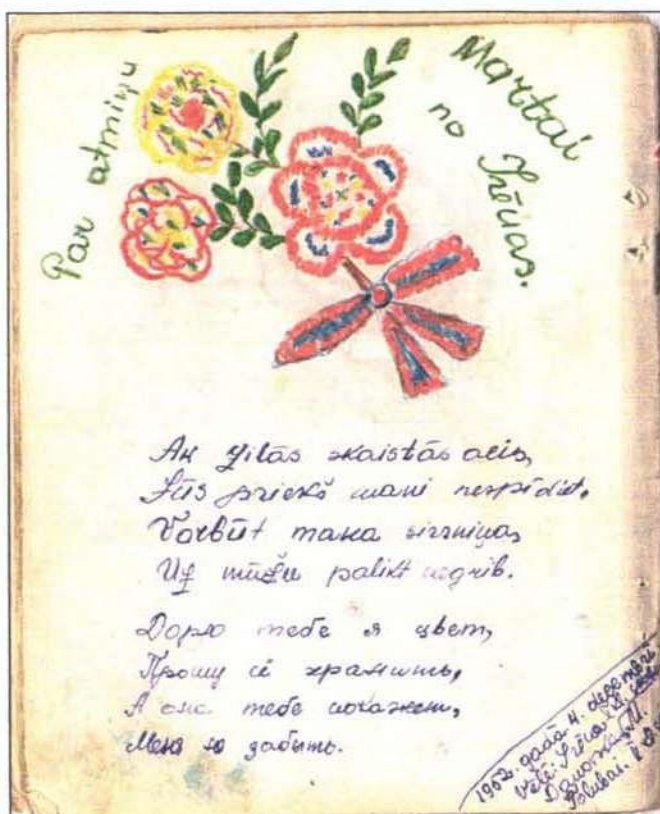 Par atmiņu
Martai
no Irēnas.
Ak zilās skaistās acis,
Jūs priekš mani nespīdiet.
Varbūt mana sirsniņa,
Uz mūžu palikt negrib.
Дарю тебе я цвет,
Прошу её хранить,
А она тебе покажет,
Меня не забыть.
1952. gadā 4. decembrī
Vēlē. Irēna